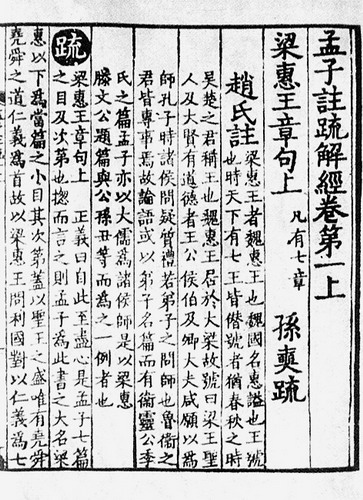 孟子註疏解經卷第一上
梁惠王章句上 凡有七章 孫奭疏
趙氏註 梁惠王者魏惠王也魏國名惠謚也王號
也時天下有七王皆僭號者猶春秋之時
吳楚之君稱王也魏惠王居於大梁故號曰梁王聖
人及大賢有道德者王公侯伯及卿大夫咸願以為
師孔子時諸侯問疑質禮若弟子之問師也魯衞之
君皆專事焉故論語或以弟子名篇而有衞靈公季
氏之篇孟子亦以大儒為諸侯師是以梁惠
滕文公題篇與公孫丑等而為之一例者也
疏 梁惠王章句上 正義曰自此至盡心是孟子七篇
之目及次第也揔而言之則孟子為此書之大名梁
惠以下為當篇之小目其次第蓋以聖王之盛唯有堯舜
堯舜之道仁義為首故以梁惠王問利國對以仁義為七